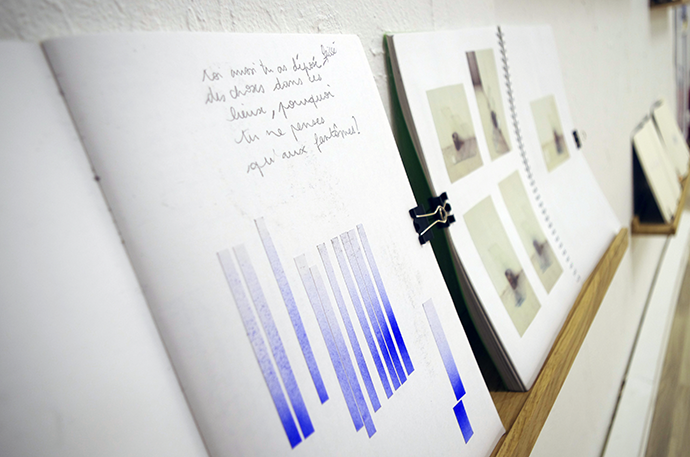 toi aussi tu as déposé laissé
des choses dans les
lieux, pourquoi
tu ne penses
qu'aux fantômes?